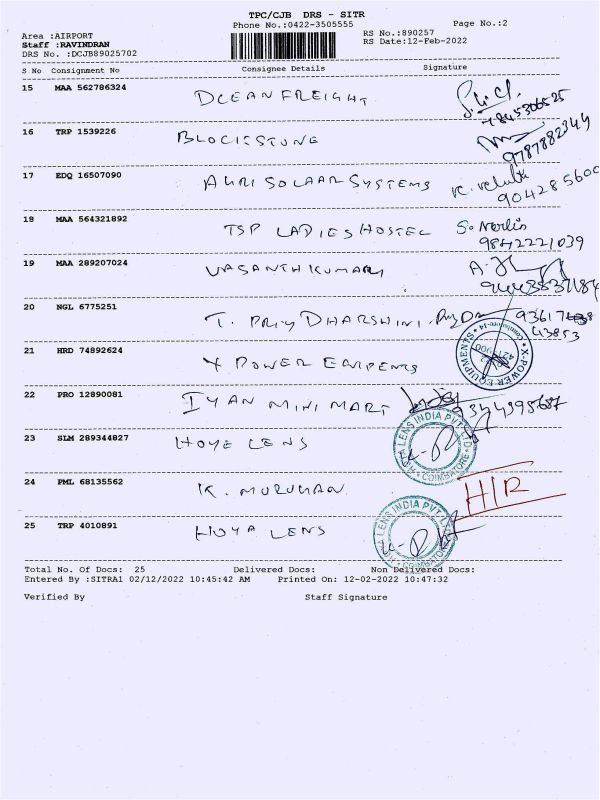 TPC/CJB DRS - SITR
Phone No.:0422-3505555
Page No.:2
Area :AIRPORT
RS No.:890257
Staff :RAVINDRAN
RS Date:12-Feb-2022
DRS No. :DCJB89025702
S No Consignment No Consignee Details Signature
15 MAA 562786324 OCEAN FREIGHT
16 TRP 1539226 BLOCKSTONE 9787882349
17 EDQ 16507090 SOLAAR SYSTEMS 904285600
18 MAA 564321892 TSP LADIES HOSTEL S. Merlin
9842221039
19 MAA 289207024 VASANTHKUMARI
20 NGL 6775251 T. PRIYDHARSHINI
43853
21 HRD 74892624 X POWER X-POWER EQUIPMENTS
22 PRO 12890081 IYAN MINI MART 9344395687
23 SLM 289344827 HOYE LENS LENS INDIA PVT LTD COIMBATORE
24 PML 68135562 K. MURUGAN
25 TRP 4010891 HOYA LENS LENS INDIA PVT COIMBATORE
Total No. Of Docs: 25 Delivered Docs: Non Delivered Docs:
Entered By :SITRA1 02/12/2022 10:45:42 AM Printed On: 12-02-2022 10:47:32
Verified By Staff Signature